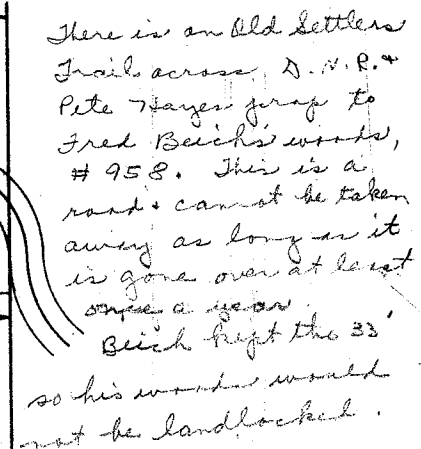 There is an Old Settlers
Trail across D.N.R. +
Pete Hayes prop to
Fred Beich's woods,
# 958. This is a
road + cannot be taken
away as long as it
is gone over at least
once a year.
Beich kept the 33'
so his woods would
not be landlocked.